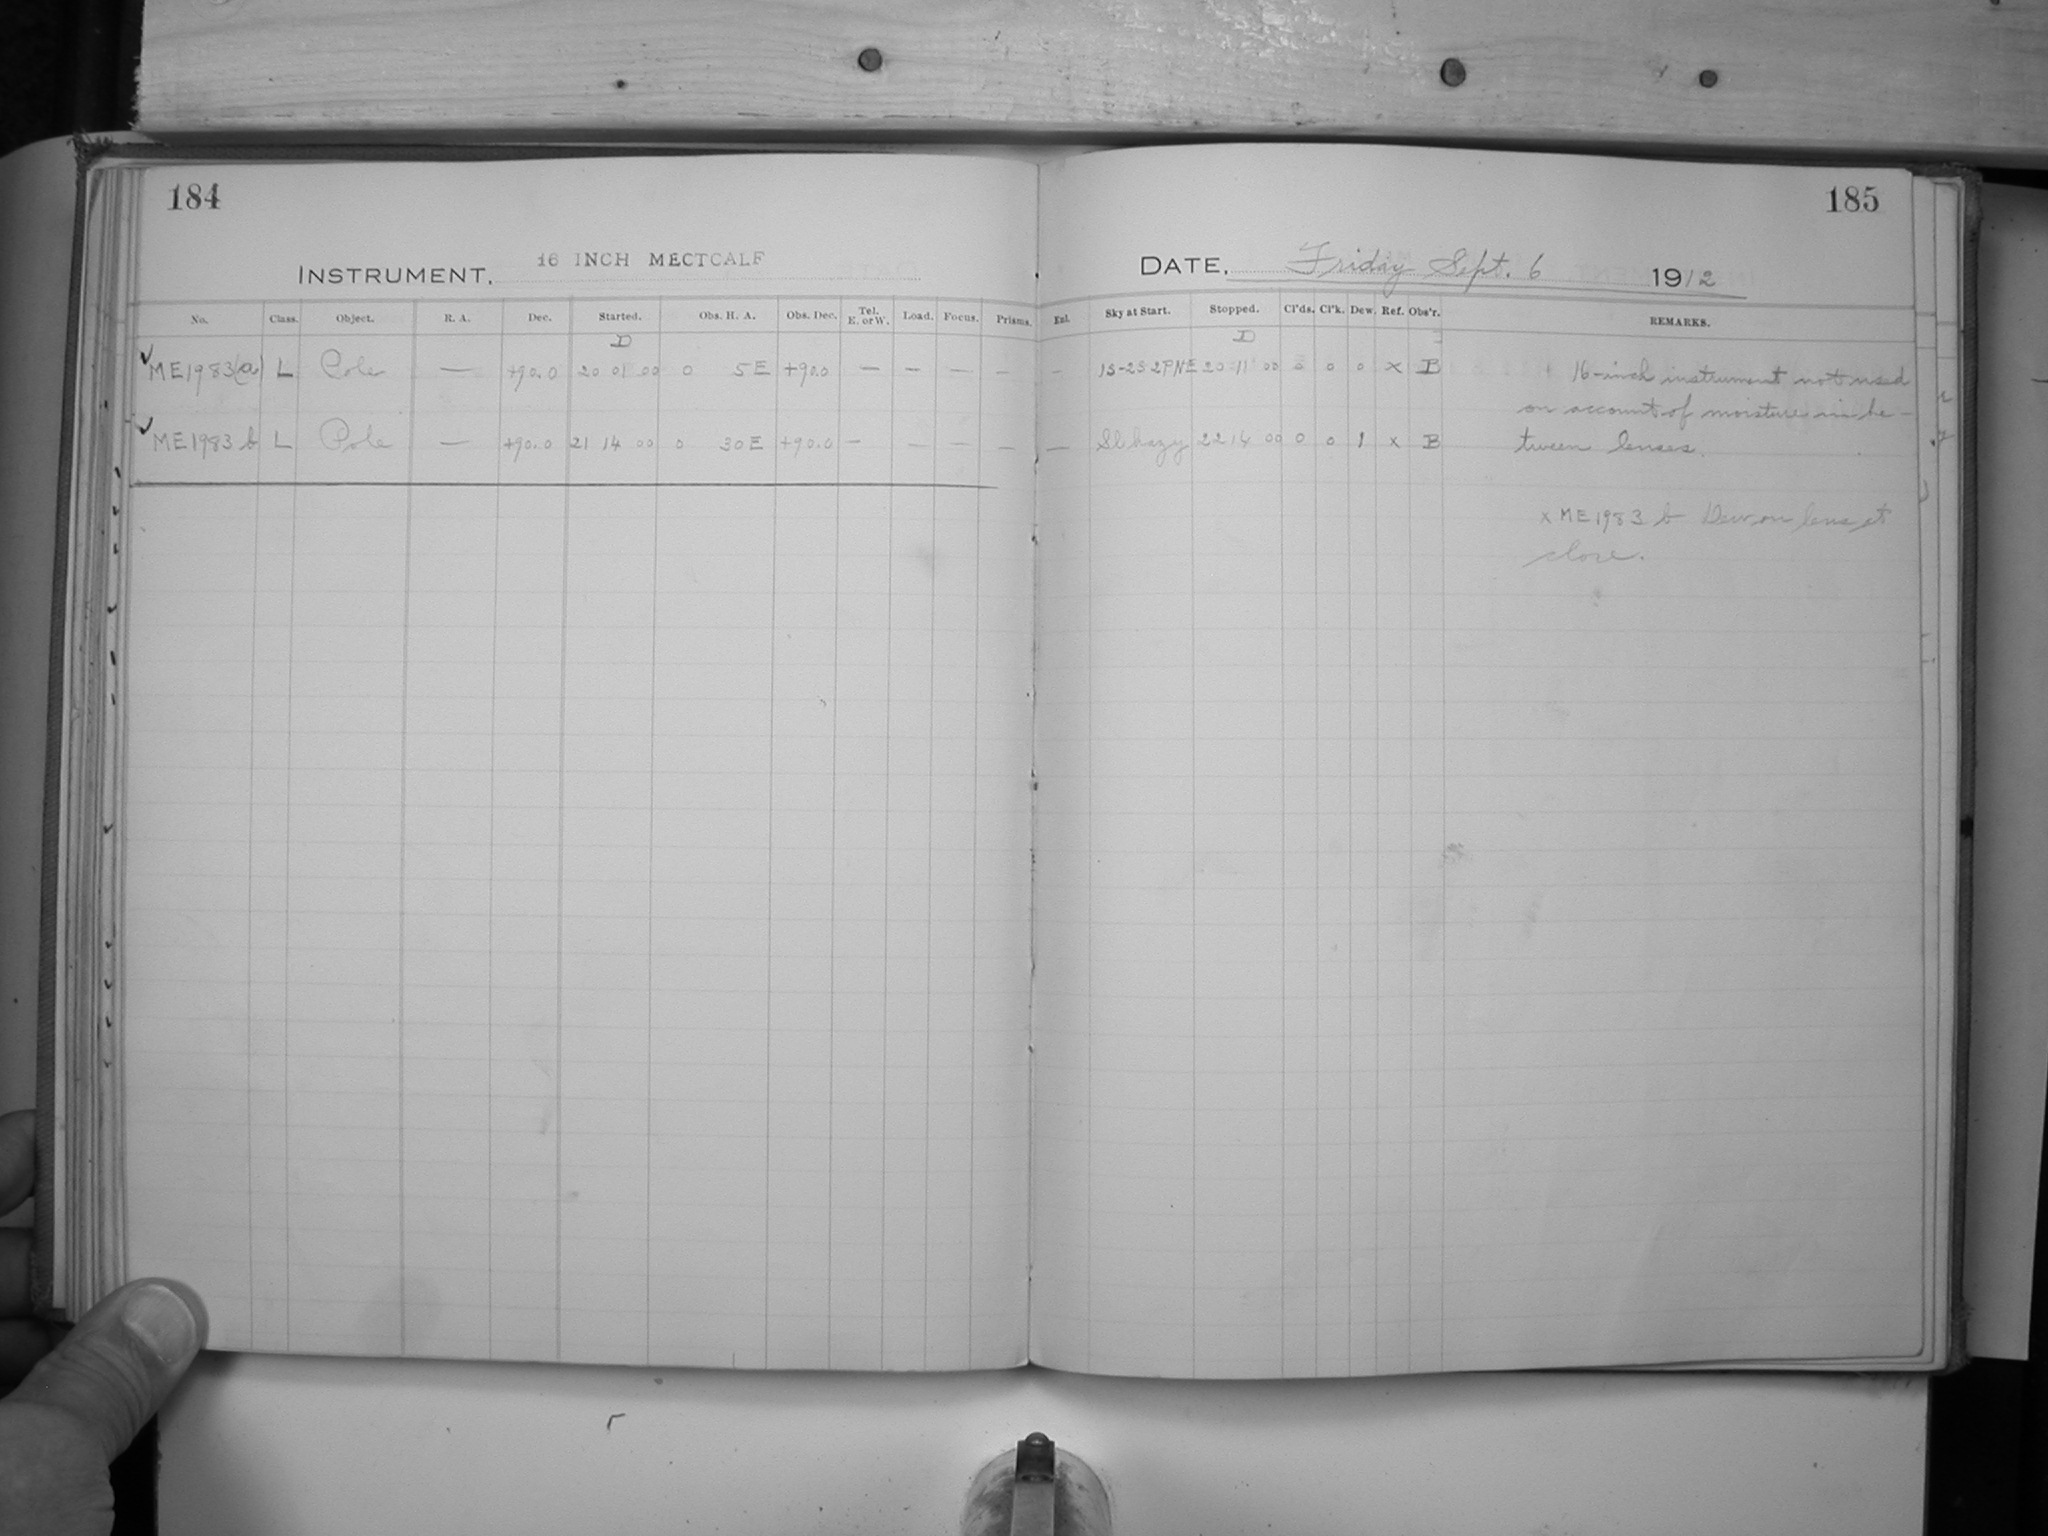 184
INSTRUMENT, 16 INCH MECTCALF
No. Class. Object. R. A. Dec. Started. Obs. H. A. Obs. Dec. Tel. E. or W. Load. Focus. Prisms.
D
✓ ME1983(a) L Pole — +90.0 20 01 00 0 5E +90.0 — — — —
✓ ME1983 b L Pole — +90.0 21 14 00 0 30E +90.0 — — — —
185
DATE, Friday Sept. 6 1912
Enl. Sky at Start. Stopped. Cl'ds. Cl'k. Dew. Ref. Obs'r. REMARKS.
D
— 1S-2S 2PNE 20 11 00 0 0 0 x B
— Sl hazy 22 14 00 0 0 1 x B
16-inch instrument not used
on account of moisture in be-
tween lenses.
x ME1983 b Dew on lens at
close.